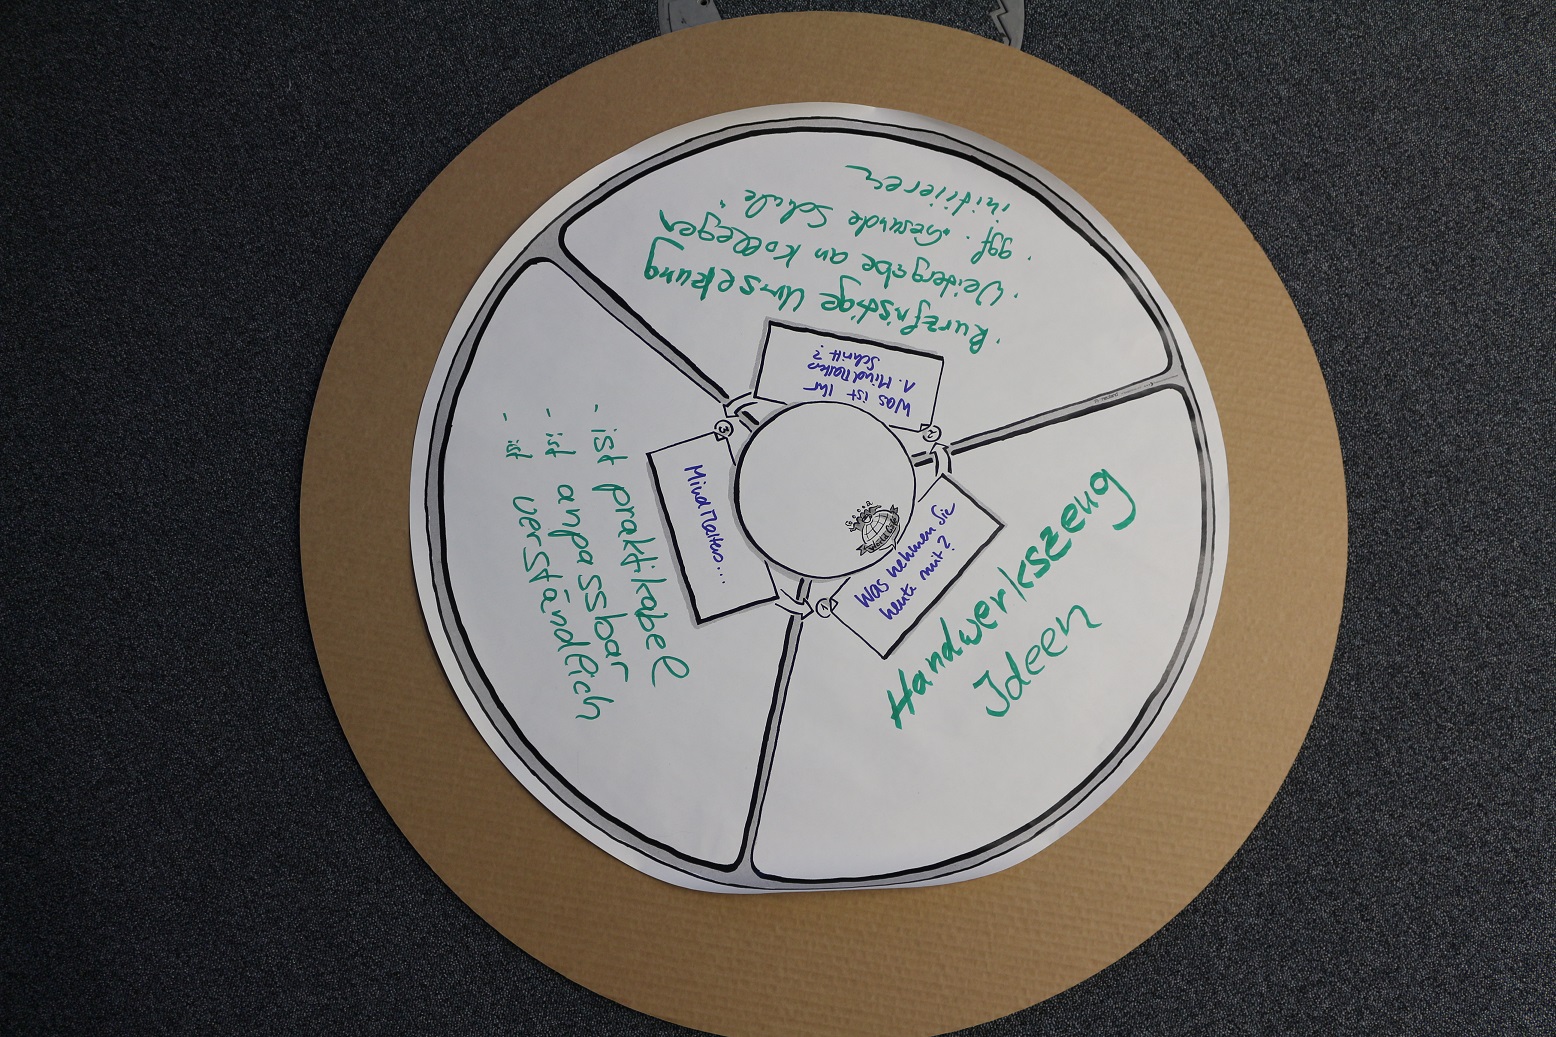 1
Was nehmen Sie
heute mit?
Handwerkszeug
Ideen
2
Was ist Ihr
1. MindMatters
Schritt?
· kurzfristige Umsetzung
· Weitergabe an Kollegen
· ggf. „Gesunde Schule"
initiieren
3
MindMatters...
- ist praktikabel
- ist anpassbar
- ist verständlich